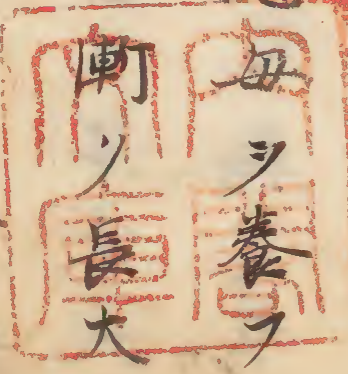 母ヲ養フ
漸ク長大